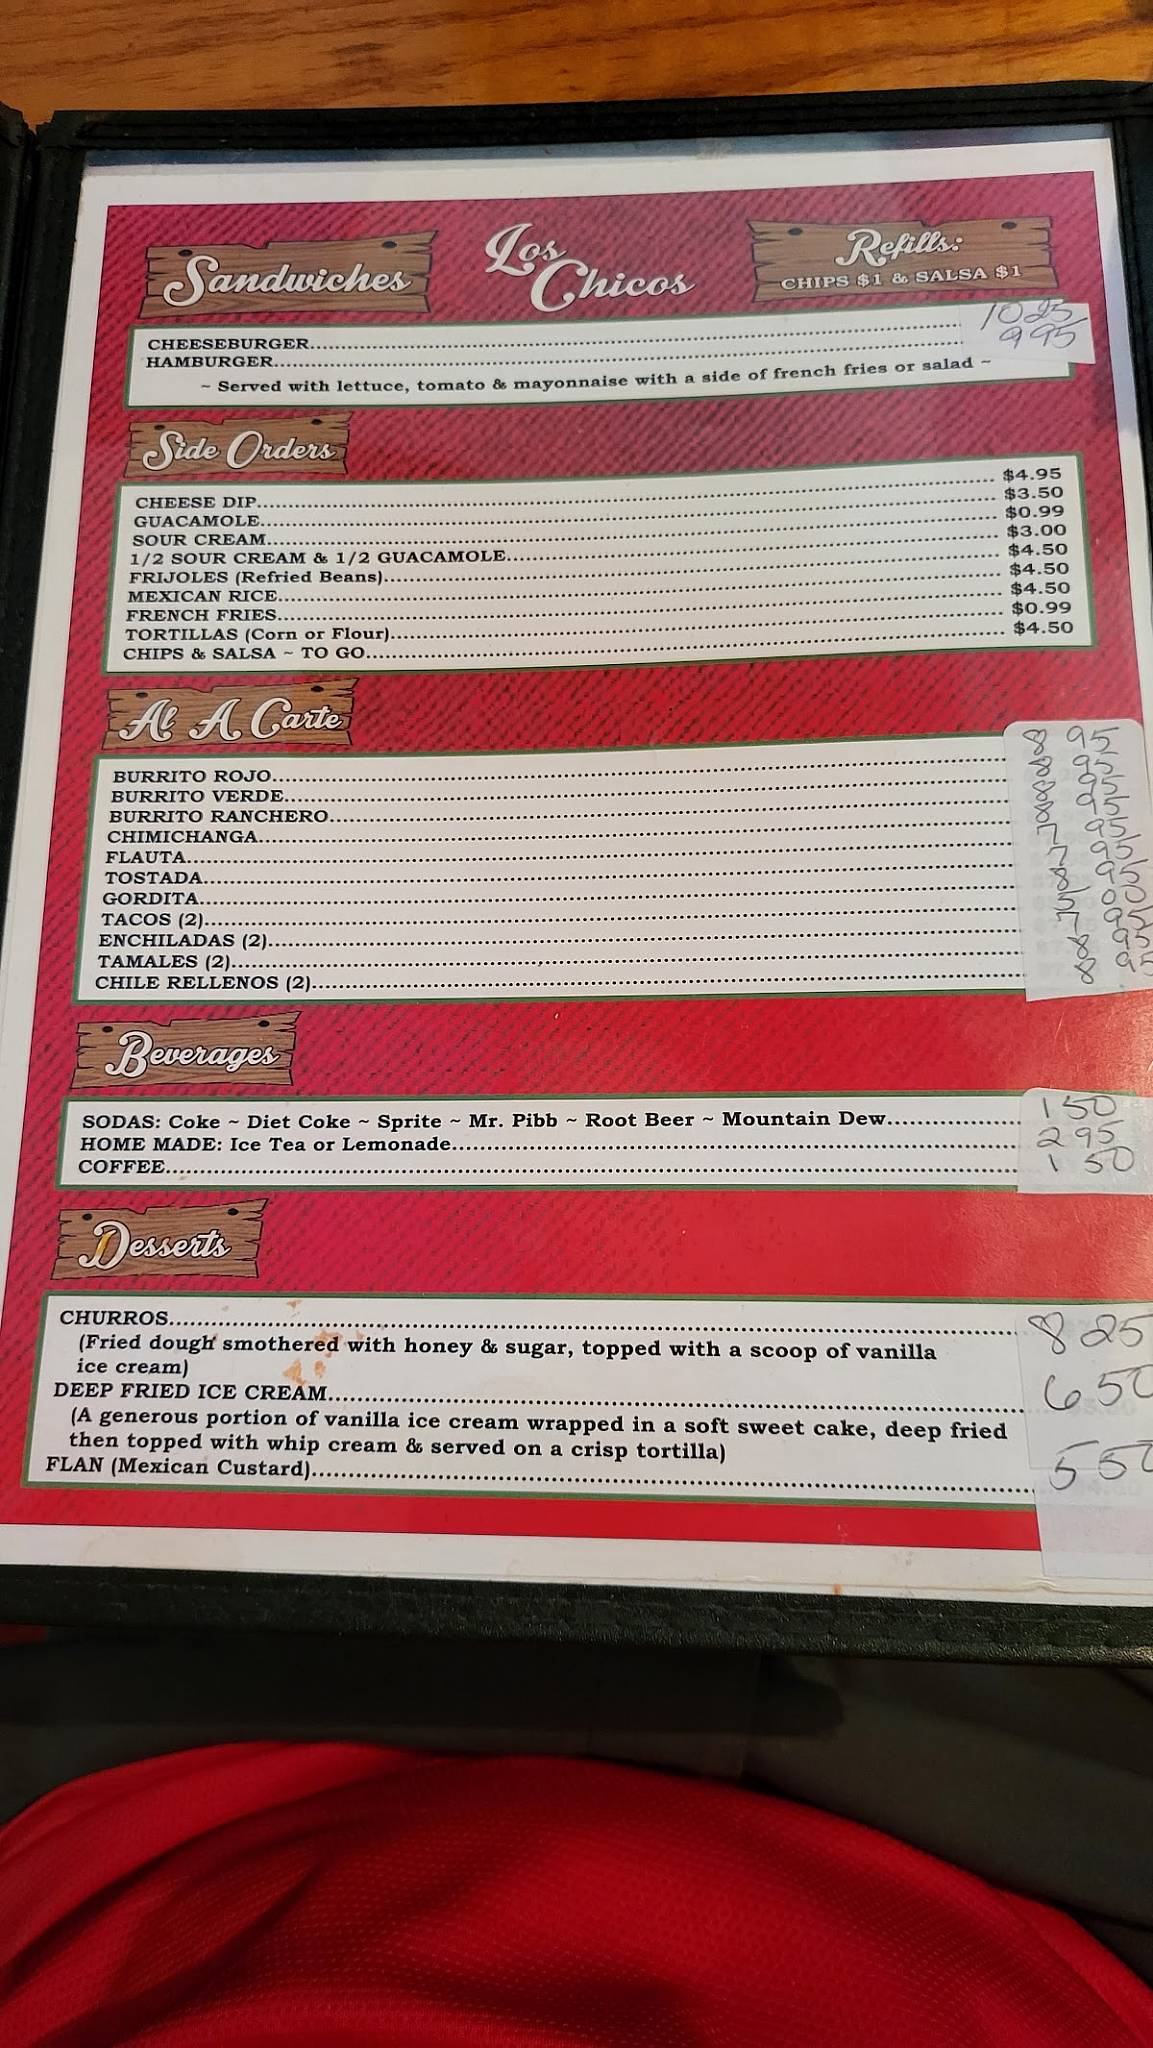 Sandwiches
Los Chicos
Refills:
CHIPS $1 & SALSA $1
CHEESEBURGER 10 25
HAMBURGER 9 95
~ Served with lettuce, tomato & mayonnaise with a side of french fries or salad ~
Side Orders
CHEESE DIP $4.95
GUACAMOLE $3.50
SOUR CREAM $0.99
1/2 SOUR CREAM & 1/2 GUACAMOLE $3.00
FRIJOLES (Refried Beans) $4.50
MEXICAN RICE $4.50
FRENCH FRIES $4.50
TORTILLAS (Corn or Flour) $0.99
CHIPS & SALSA ~ TO GO $4.50
Al A Carte
BURRITO ROJO 8 95
BURRITO VERDE 8 95
BURRITO RANCHERO 8 95
CHIMICHANGA 8 95
FLAUTA 7 95
TOSTADA 7 95
GORDITA 8 95
TACOS (2) 5 00
ENCHILADAS (2) 7 95
TAMALES (2) 8 95
CHILE RELLENOS (2) 8 95
Beverages
SODAS: Coke ~ Diet Coke ~ Sprite ~ Mr. Pibb ~ Root Beer ~ Mountain Dew 1 50
HOME MADE: Ice Tea or Lemonade 2 95
COFFEE 1 50
Desserts
CHURROS 8 25
(Fried dough smothered with honey & sugar, topped with a scoop of vanilla
ice cream)
DEEP FRIED ICE CREAM 6 50
(A generous portion of vanilla ice cream wrapped in a soft sweet cake, deep fried
then topped with whip cream & served on a crisp tortilla)
FLAN (Mexican Custard) 5 50